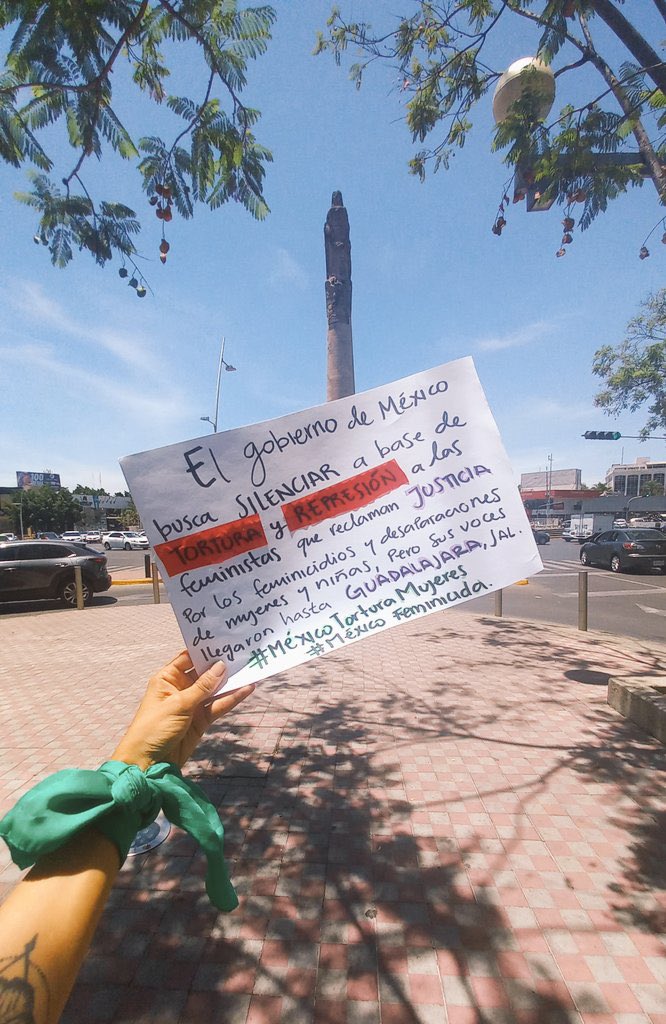 El gobierno de México
busca SILENCIAR a base de
TORTURA y REPRESIÓN a las
feministas que reclaman JUSTICIA
Por los feminicidios y desapariciones
de mujeres y niñas, Pero sus voces
llegaron hasta GUADALAJARA, JAL.
#MéxicoTorturaMujeres
#México Feminicida.
100